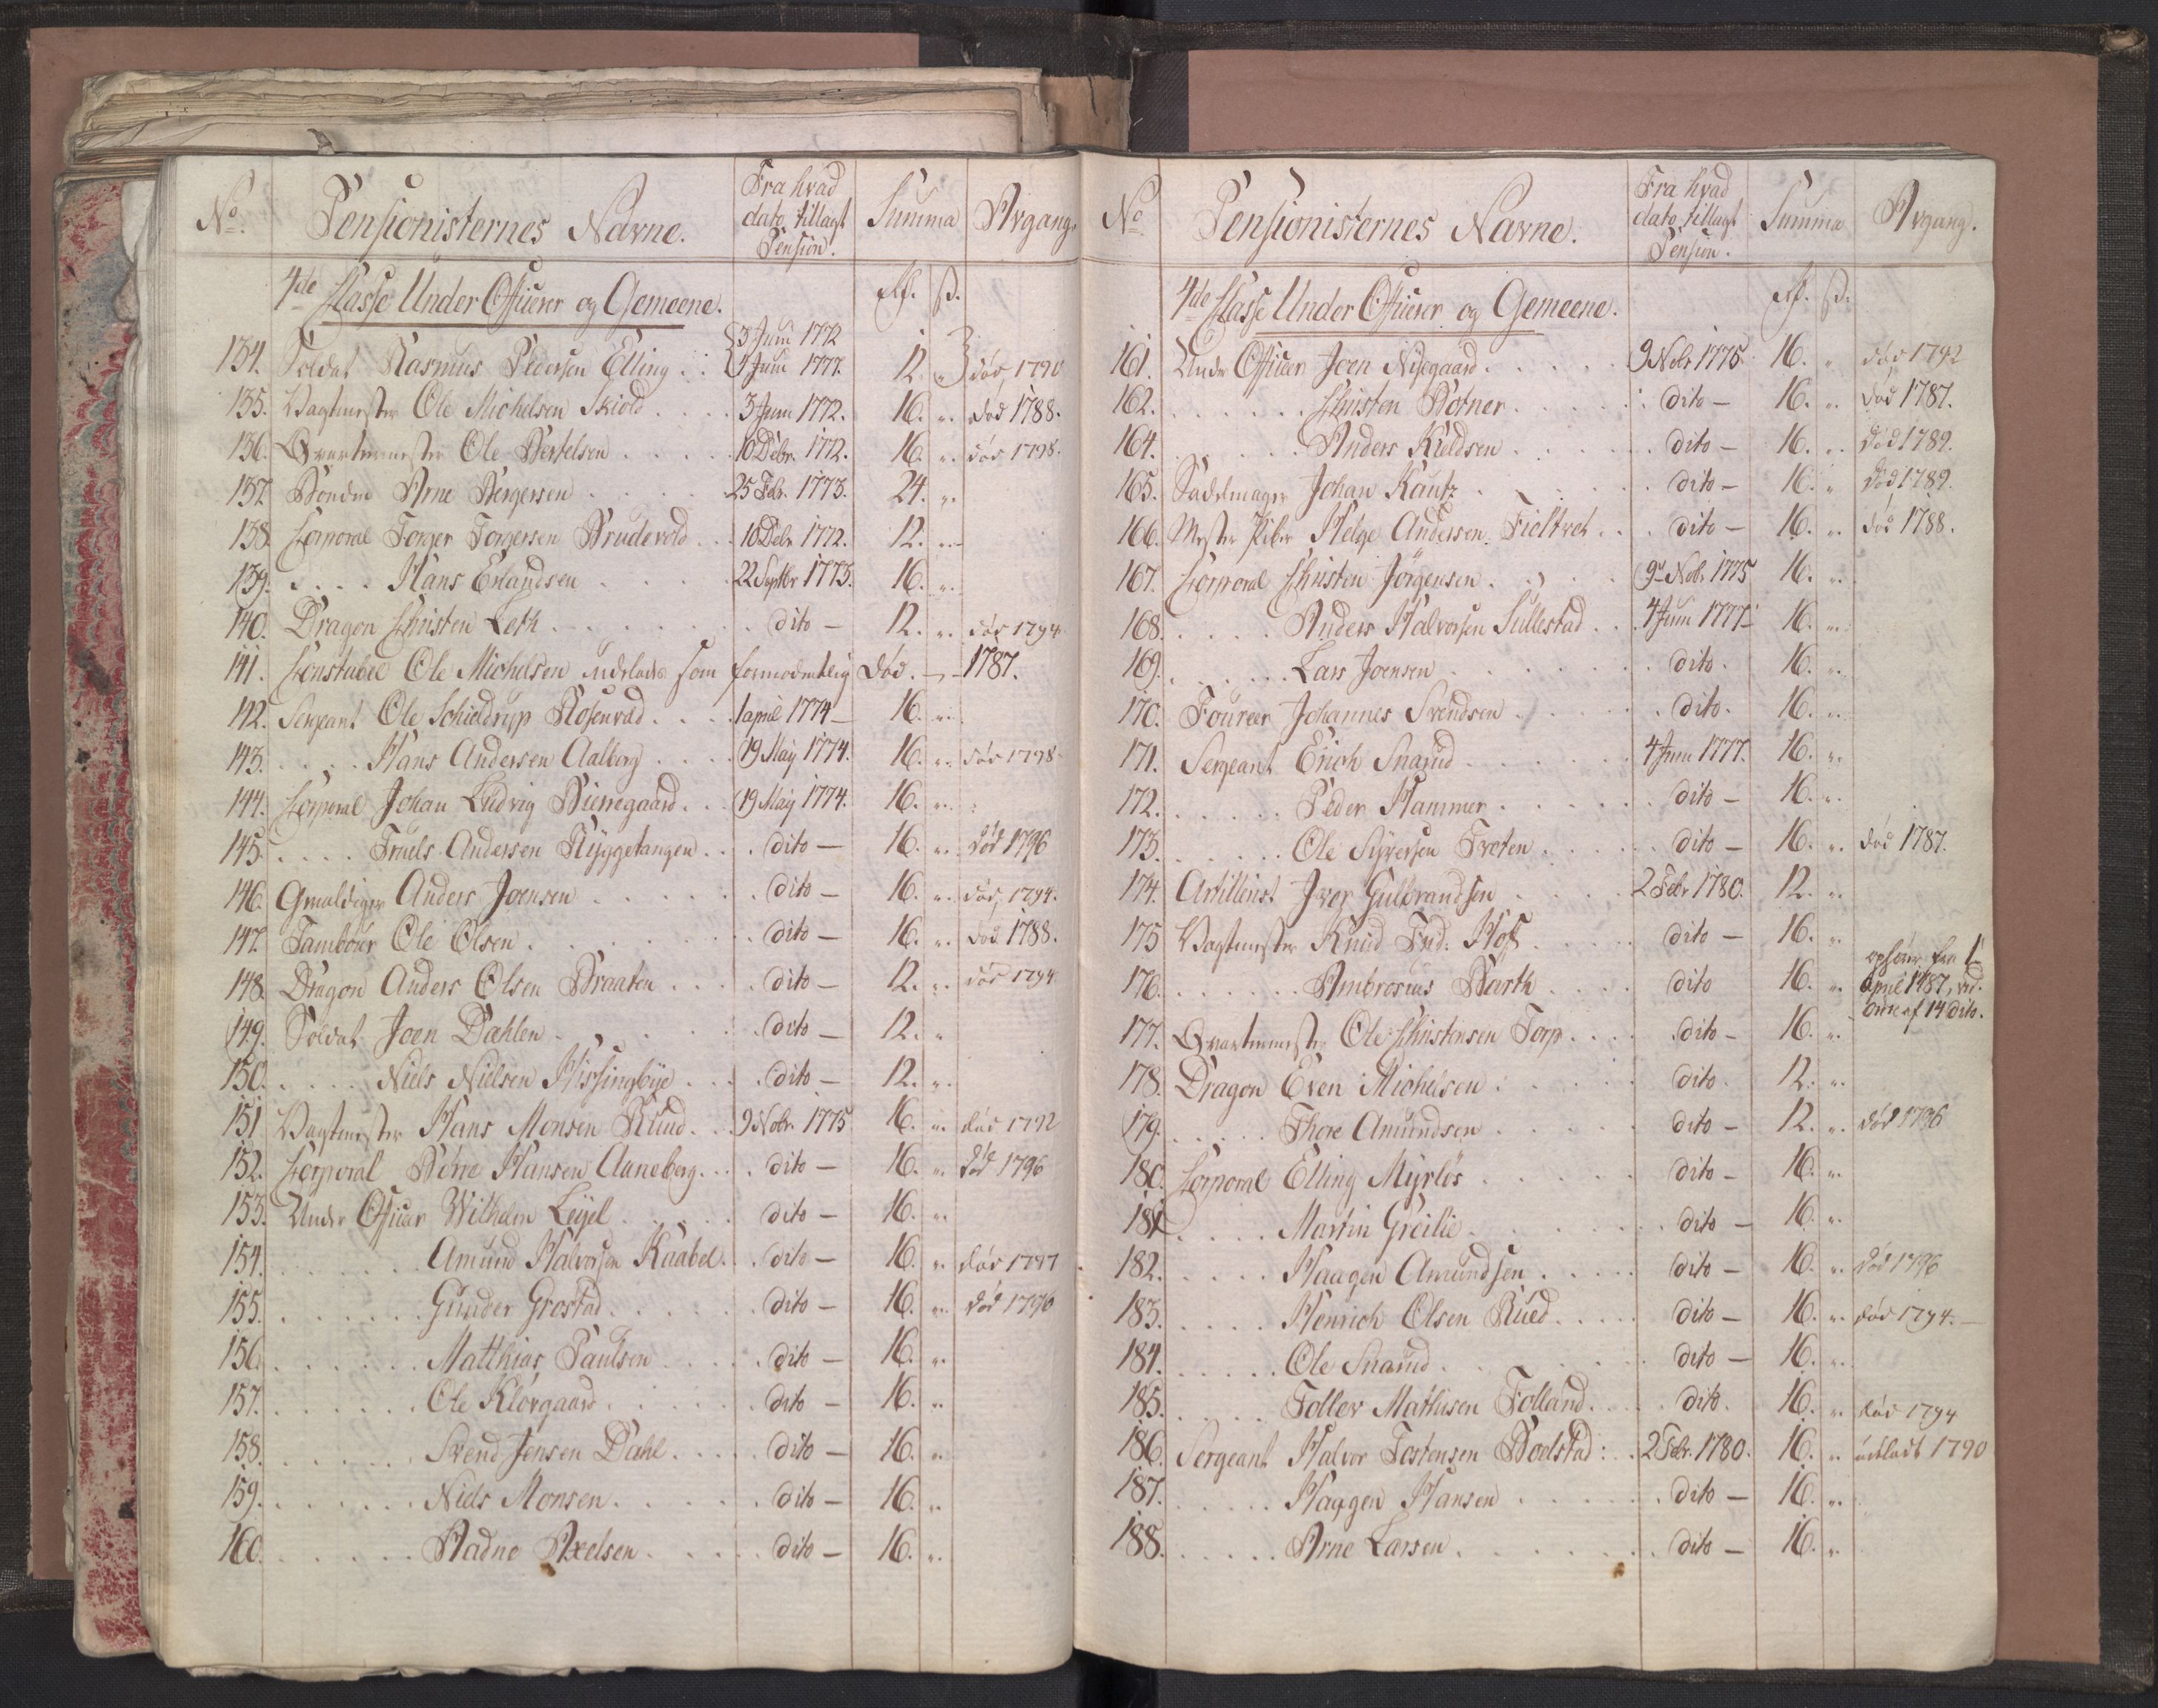 No. Pensionisternes Navne. Fra hvad dato tillagt Pension. Summa Afgang.
4de Classe Under Officerer og Gemeene. Rf. ß.
134. Soldat Rasmus Pedersen Elling . . { 3 Juni 1772 4 Juni 1777. 12. " død 1790
135. Vagtmester Ole Michelsen Skiold . . . . 3 Juni 1772. 16. " død 1788.
136. Qvarteermester Ole Bertelsen . . . . . 10 Debr. 1772. 16. " død 1798.
137. Bonden Arne Bergersen . . . . . 25 Febr. 1773. 24. "
138. Corporal Torger Torgersen Brudevold . . . 10 Debr. 1772. 12. "
139. . . . . Hans Erlandsen . . . . . 22 Septbr 1773. 16. "
140. Dragon Christen Leth . . . . . . . . dito — 12. " død 1794
141. Constabel Ole Michelsen udelades som formodentlig død. — 1787.
142. Sergeant Ole Schieldrup Rosenvold . . . . 1 april 1774 — 16. "
143. . . . . Hans Andersen Aalborg . . . . 19 May 1774. 16. " død 1798.
144. Corporal Johan Ludvig Bierregaard . . . 19 May 1774. 16. "
145. . . . . Truels Andersen Ryggetangen . . . dito — 16. " død 1796
146. Gevaldiger Anders Joensen . . . . . . dito — 16. " død 1794.
147. Tambour Ole Olsen . . . . . . . . dito — 16. " død 1788.
148. Dragon Anders Olsen Braaten . . . . dito — 12. " død 1794
149. Soldat Joen Dahlen . . . . . . . dito — 12. "
150. . . . . Niels Nielsen Hissingbye . . . dito — 12. "
151. Vagtmester Hans Monsen Rund . . . 9 Nobr. 1775 16. " død 1792
152. Corporal Børre Hansen Aaneberg . . . dito — 16. " død 1796
153. Under Officer Wilhelm Leyel . . . . . dito — 16. "
154. . . . . . . Amund Halvorsen Kaabel . . dito — 16. " død 1797
155. . . . . . . Gunder Grostad . . . . . . dito — 16. " død 1790
156. . . . . . . Matthias Paulsen . . . . . dito — 16. "
157. . . . . . . Ole Kløvgaard . . . . . . dito — 16. "
158. . . . . . . Svend Jensen Dahl . . . . dito — 16. "
159. . . . . . . Niels Monsen . . . . . . dito — 16. "
160. . . . . . . Aadne Axelsen . . . . . dito — 16. "
No Pensionisternes Navne. Fra hvad dato tillagt Pension. Summa Afgang.
4de Classe Under Officerer og Gemeene. Rf. ß.
161. Under Officeer Joen Nysegaard . . . . . 9 Nobr 1775. 16. " død 1792
162. . . . . . . Christen Botner . . . . . dito — 16. " død 1787.
164. . . . . . . Anders Kieldsen . . . . . dito — 16. " død 1789.
165. Sadelmager Johan Kautz . . . . . . dito — 16. " død 1789.
166. Mester Piber Helge Andersen Tieltvet . . . dito — 16. " død 1788.
167. Corporal Christen Jørgensen . . . . . 9 Nobr. 1775 16. "
168. . . . . Anders Halvorsen Sullestad . . . 4 Juni 1777. 16. "
169. . . . . . . Lars Joensen . . . . . . . dito. 16. "
170. Foureer Johannes Svendsen . . . . . dito. 16. "
171. Sergeant Erich Snarud . . . . . . 4 Juni 1777. 16. "
172. . . . . . Peder Hammer . . . . . . dito — 16. "
173. . . . . . Ole Syversen Tveten . . . . . dito — 16. " død 1787.
174. Artillerist Iver Gulbrandsen . . . . 2 Febr 1780. 12. "
175 Vagtmester Knud Frid: Hoff . . . . . dito — 16. "
176. . . . . . . Ambrosius Barth . . . . dito 16. " ophører fra 1 April 1787, ved. Ordre af 14 dito.
177. Qvarteermester Ole Christensen Torp . . . . dito — 16. "
178. Dragon Even Michelsen . . . . . dito. 12. "
179. . . . . . Thore Amundsen . . . . . dito — 12. " død 1796
180. Corporal Elling Myrløs . . . . . . dito — 16. "
181. . . . . Martin Greilie . . . . . . . dito — 16. "
182. . . . . Haagen Amundsen . . . . . dito — 16. " død 1796
183. . . . . Henrich Olsen Rued . . . . . dito — 16. " død 1794. —
184. . . . . . Ole Snarud . . . . . . . dito — 16. "
185. . . . . Tollev Mathisen Tolland . . . . dito. 16. " død 1794
186. Sergeant Halvor Tostensen Boelstad : . . 2 Febr. 1780. 16. " udeladt 1790
187. . . . . . Haagen Hansen . . . . . . dito — 16. "
188. . . . . . Arne Larsen . . . . . . . dito — 16. "